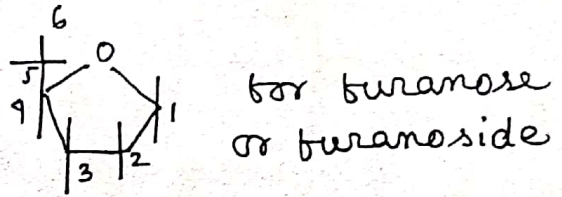 6
O
5
4
1
3
2
for furanose
or furanoside